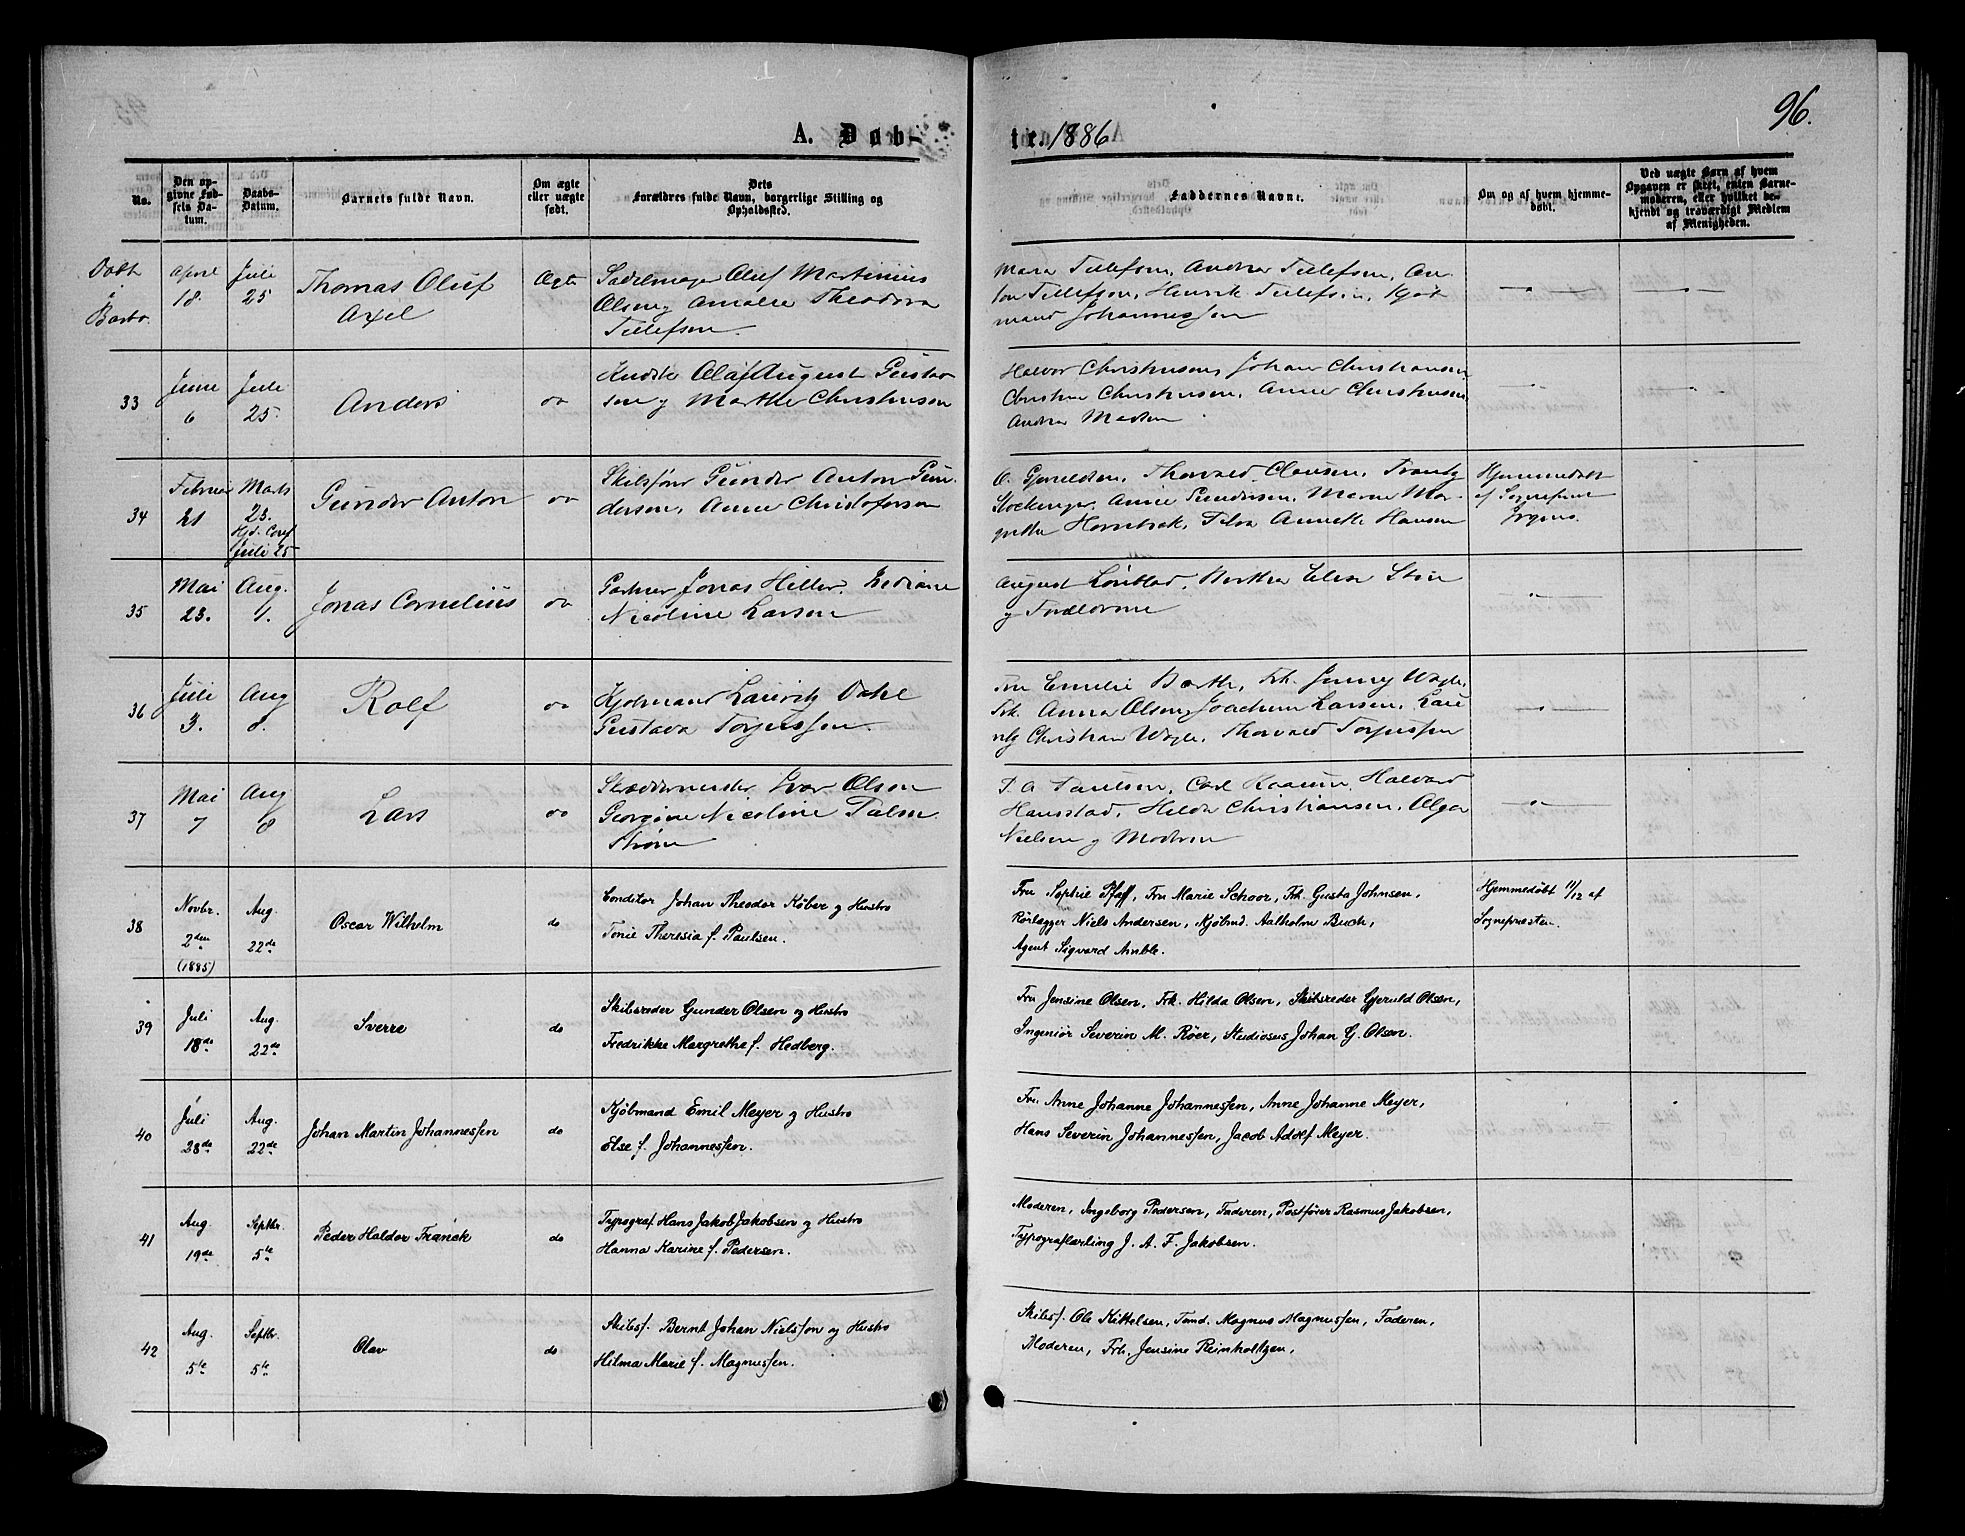 96.
A. Døb-
te. 1886
No.
Den opgivne Fødsels Datum.
Daabs-Datum.
Barnets fulde Navn.
Om ægte eller uægte født.
Dets Forældres fulde Navn, borgerlige Stilling og Opholdssted.
Faddernes Navne.
Om og af hvem hjemmedøbt.
Ved uægte Børn af hvem Opgaven er skeet, enten Barnemoderen, eller hvilket bekjendt og troværdigt Medlem af Menigheden.
Døbt i
April 18.
Juli 25
Thomas Oluf
Axel
Ægte
Sadelmager Oluf Martinius
Olsen og Amalie Theodora
Tellefsen.
Tellefsen, Andrea Tellefsen, An-
ton Tellefsen, Henrik Tellefsen, Kjøb
mand Johannessen
33
Juni 6
Juli 25.
Anders
do
Olaf August Gustav
sen og Marthe Christensen
Halvor Christensen, Johan Christiansen
Christine Christensen, Anne Christensen
Andrea Madsen
34
Februar 21
Marts 23.
Juli 25
Gunder Anton
do
Skibsfører Gunder Anton Gun-
dersen, Anne Christofersen
O. Gjeruldsen, Thorvald Clausen,
Anne Gundersen, Maren Mar-
grethe Hornbæk, Annette Hansen
Hjemmedøbt
af Sognepræst
35
Mai 23.
Aug. 1.
Jonas Cornelius
do
Gartner Jonas Hiller,
Nicoline Larsen
August Lønblad, Berthea Elise
og Forældrene
36
Juli 3.
Aug 8.
Rolf
do
Kjøbmand Lauritz Dahl
Gustava Torjussen.
Fru Emelie Barth, Frk. Jenny Wagle,
Frk. Anna Olsen, Joachum Larsen, Lau
ritz Christian Wagle, Thorvald Torjussen
37
Mai 7
Aug 8
Lars
do
Skræddermester Ivar Olsen
Georgine Nicoline Palm
Strøm
P. A. Paulsen, Carl Halvard
Haustad, Hilda Christiansen, Olga
Nielsen og Moderen
38
Novbr. 2den (1885)
Aug. 22de
Oscar Wilhelm
do
Conditor Johan Theodor Køber og Hustro
Tonie Theresia f. Paulsen.
Fru Sophie Pfaff, Fru Marie Schoor, Frk. Gusta Johnsen,
Rørlægger Niels Andersen, Kjøbmd. Aalholm Buch,
Agent Sigvard Amble.
Hjemmedøbt 11/12 af
Sognepresten.
39
Juli 18de
Aug. 22de
Sverre
do
Skibsreder Gunder Olsen og Hustro
Fredrikke Margrethe f. Hedberg.
Fru Jensine Olsen, Frk. Hilda Olsen, Skibsreder Gjeruld Olsen,
Ingeniør Severin M. Røer, Studiosus Johan G. Olsen.
40
Juli 28de
Aug. 22de
Johan Martin Johannessen
do
Kjøbmand Emil Meyer og Hustro
Else f. Johannessen.
Fru Anne Johanne Johannessen, Anne Johanne Meyer,
Hans Severin Johannessen, Jacob Adolf Meyer.
41
Aug. 19de
Septbr. 5te
Peder Haldor Franck
do
Typograf Hans Jakob Jakobsen og Hustro
Hanna Karine f. Pedersen.
Moderen, Ingeborg Pedersen, Faderen, Postfører Rasmus Jakobsen,
Typograflærling J. A. F. Jakobsen.
42
Aug. 5te
Septbr. 5te
Olav
do
Skibsf. Bernt Johan Nielssen og Hustro
Hilma Marie f. Magnussen.
Skibsf. Ole Kittelsen, Tømd. Magnus Magnussen, Faderen,
Moderen, Frk. Jensine Reinholtzen,